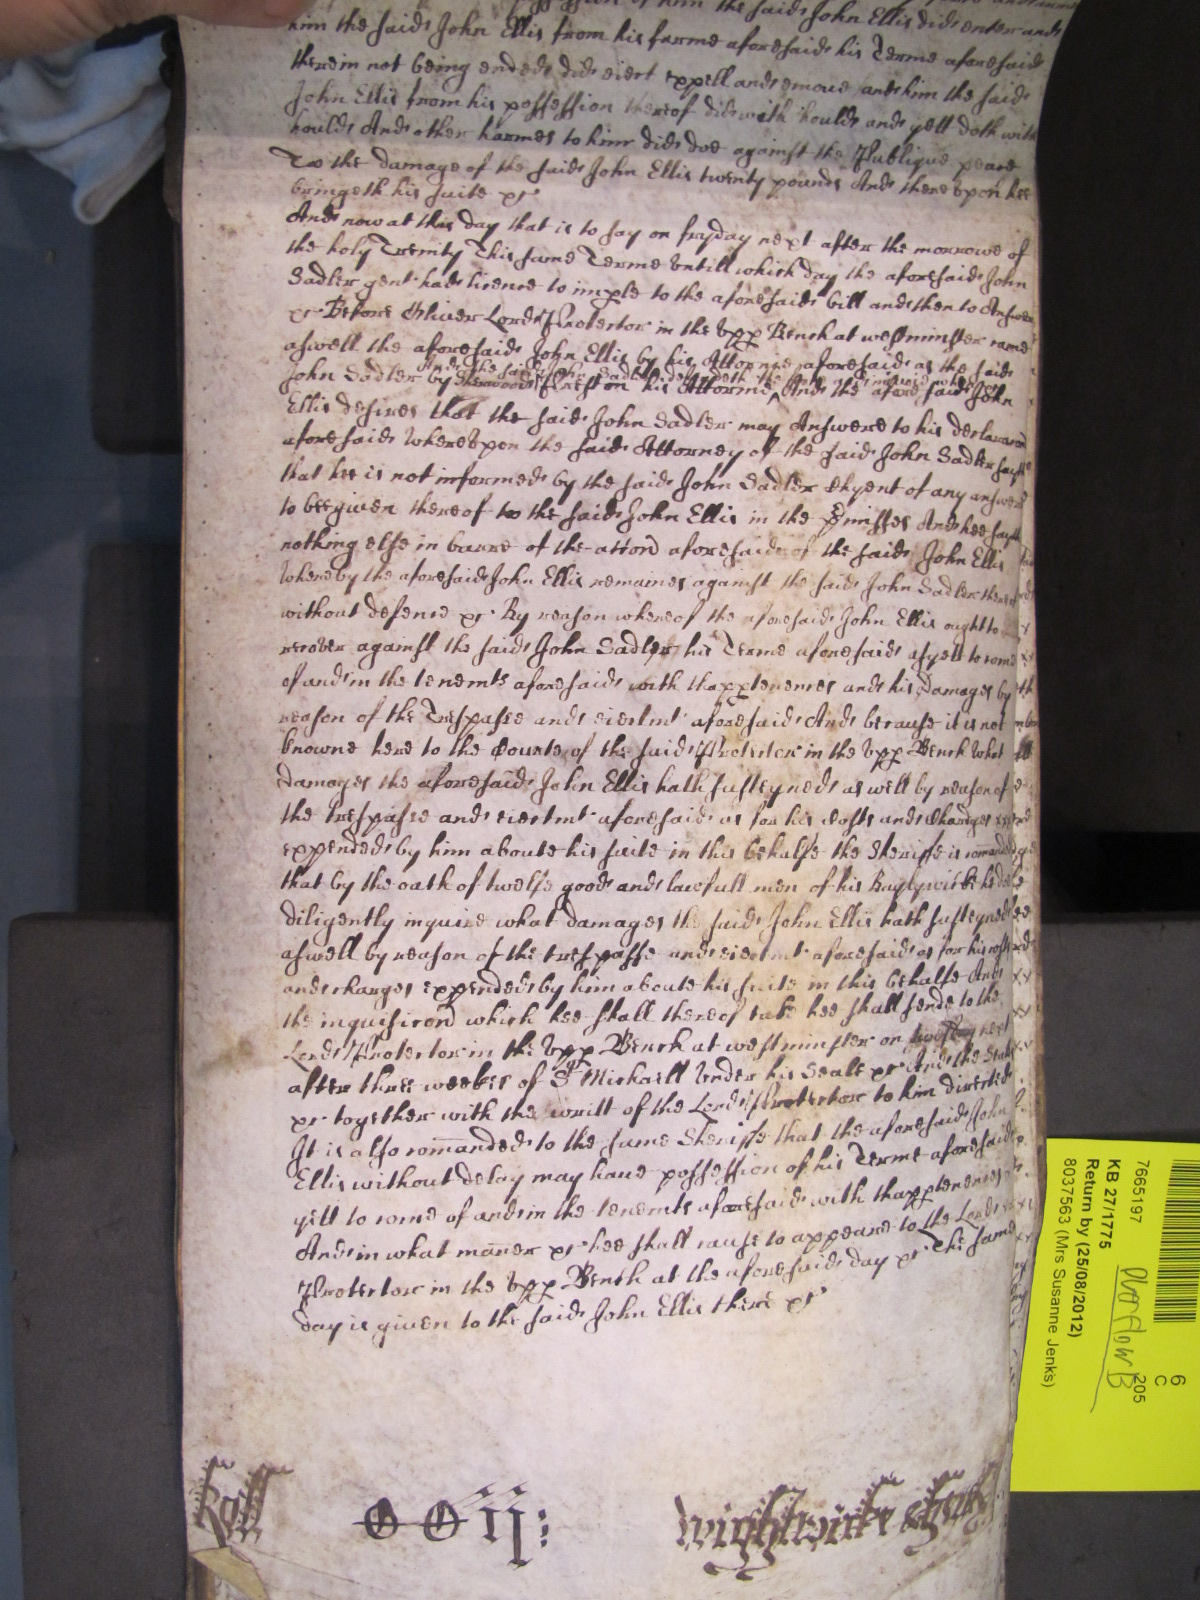 possession of him the said John Ellis did enter and
him the said John Ellis from his farme aforesaid his Terme aforesaid
therein not being ended did eiect expell and amove and him the said
John Ellis from his possession thereof did with hould and yett doth with
hould And other harmes to him did doe against the Publique peace
To the damage of the said John Ellis twenty pounds And thereupon hee
bringeth his suite &c
And now at this day that is to say on fryday next after the morrowe of
the holy Trinity This same Terme Untill which day the aforesaid John
Sadler gent had licence to imple to the aforesaid bill and then to Answere
&c Before Oliver Lord Protector in the Upp Bench at westminster came
aswell the aforesaid John Ellis by his Attornie aforesaid as the said
John Sadler by Preston his Attornie And the aforesaid John
Ellis desires that the said John Sadler may Answere to his declaracon
aforesaid Whereupon the said Attorney of the said John Sadler sayth
that hee is not informed by the said John Sadler Clyent of any answere
to bee given thereof to the said John Ellis in the pmisses And hee sayth
nothing else in barre of the accon aforesaid of the said John Ellis
Whereby the aforesaid John Ellis remaines against the said John Sadler thereof
without defence &c By reason whereof the aforesaid John Ellis ought to
recover against the said John Sadler his Terme aforesaid as yett to come
of and in the tenemts aforesaid with thapptenences and his Damages by
reason of the Trespasse and eiectmt aforesaid And because it is not
knowne here to the Courte of the said Protector in the Upp Bench What
damages the aforesaid John Ellis hath susteyned as well by reason of
the trespasse and eiectmt aforesaid as for his Costs and Charges
expended by him aboute his suite in this behalfe the Sheriffe is comanded
that by the oath of twelfe good and lawfull men of his Baylywicke hee
diligently inquire what damages the said John Ellis hath susteyned
aswell by reason of the trespasse and eiectmt aforesaid as for his costs
and charges expended by him aboute his suite in this behalfe And
the inquisicond which hee shall thereof take hee shall sende to the
Lord Protector in the Upp Bench at westminster on next
after three weekes of St Michaell Under his Seale &c And the
&c together with the writt of the Lord Protector to him directed
It is also comanded to the same Sheriffe that the aforesaid John
Ellis without delay may have possession of his Terme aforesaid
yett to come of and in the tenemts aforesaid with thapptenences
And in what maner &c hee shall cause to appeare to the Lord
Protector in the Upp Bench at the aforesaid day &c The same
day is given to the said John Ellis there &c
Roll
Wightwicke
7665197
KB 27/1775
Return by (25/08/2012)
8037563 (Mrs Susanne Jenks)
overflow B
6
C
205